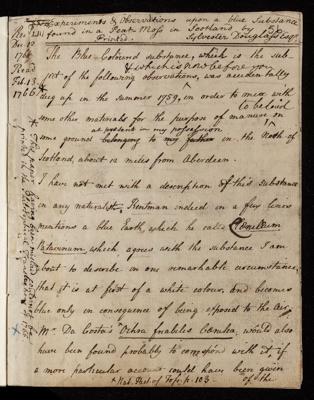 Experiments & Observations upon a blue Substance
found in a Peat-Moss in Scotland by
Sylvester Douglass Esqr.
Printed.
Dec. 12
1765
Read
Feb. 13
1766
The Blue-Coloured substance, which is the sub-
& which is now before you,
ject of the following observations, was accidentally
dug up in the summer 1759, in order to mix with
to be laid
some other materials for the purpose of manure on
at present in my possession
some ground belonging to my father in the North of
Scotland, about 12 miles from Aberdeen.
I have not met with a description of this substance
in any naturalist. Kentman indeed in a few lines
mentions a blue Earth, which he calls
Patavinum, which agrees with the substance I am
about to describe in one remarkable circumstance,
that it is at first of a white colour, and becomes
blue only in consequence of being exposed to the air.
Mr. Da Costa's Ochra friabilis Cærulea, would also
have been found probably to correspond with it, if
a more particular account could have been given
* Nat. Hist. of Foss. p. 103.
of the
* This paper having been
printed in the